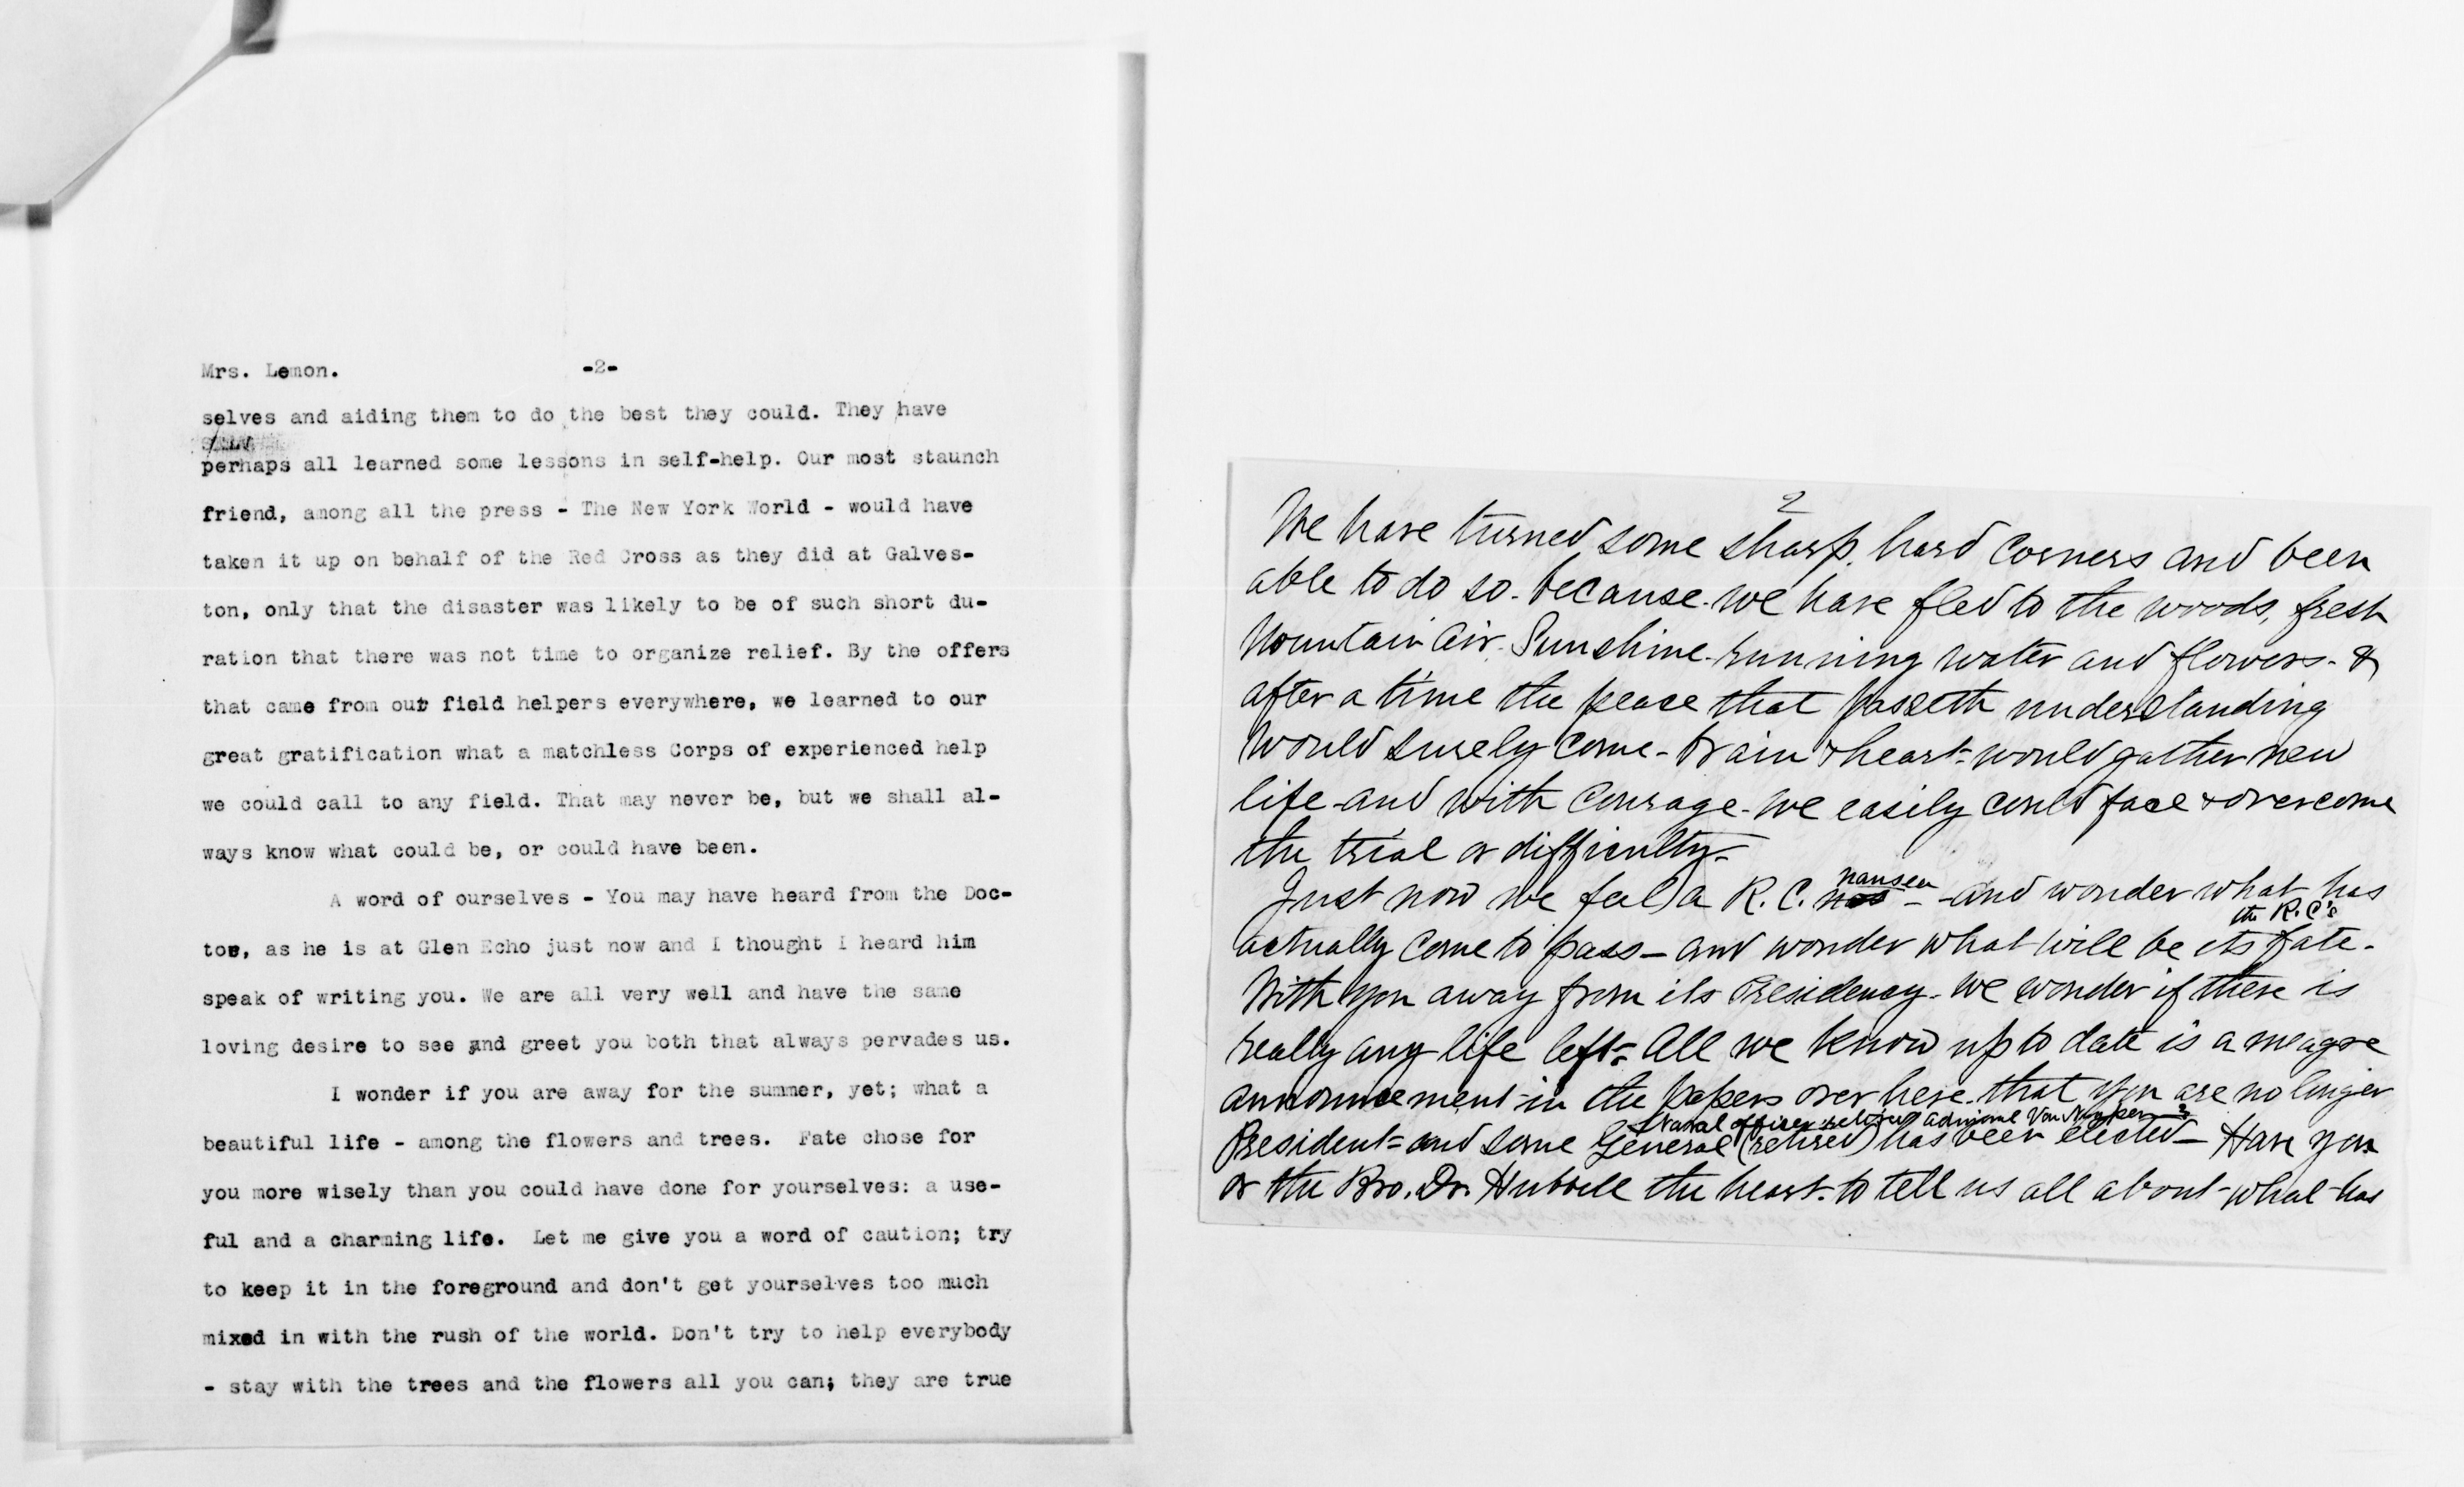 Mrs. Lemon. -2-
selves and aiding them to do the best they could. They have
perhaps all learned some lessons in self-help. Our most staunch
friend, among all the press - The New York World - would have
taken it up on behalf of the Red Cross as they did at Galves-
ton, only that the disaster was likely to be of such short du-
ration that there was not time to organize relief. By the offers
that came from our field helpers everywhere, we learned to our
great gratification what a matchless Corps of experienced help
we could call to any field. That may never be, but we shall al-
ways know what could be, or could have been.
A word of ourselves - You may have heard from the Doc-
tor, as he is at Glen Echo just now and I thought I heard him
speak of writing you. We are all very well and have the same
loving desire to see and greet you both that always pervades us.
I wonder if you are away for the summer, yet; what a
beautiful life - among the flowers and trees. Fate chose for
you more wisely than you could have done for yourselves: a use-
ful and a charming life. Let me give you a word of caution; try
to keep it in the foreground and don't get yourselves too much
mixed in with the rush of the world. Don't try to help everybody
- stay with the trees and the flowers all you can; they are true
2
We have turned some sharp, hard corners and been
able to do so - because - we have fled to the woods, fresh
Mountain Air - Sunshine - running water and flowers - &
after a time the peace that passeth understanding
would surely come - brain & heart - would gather new
life - and with courage - we easily could face & overcome
the trial or difficulty -
nausea
Just now we feel a R. C. - and wonder what has
the R. C's
actually come to pass - and wonder what will be its fate -
With you away from its Presidency - we wonder if there is
really any life left - All we know up to date is a meagre
announcement - in the papers over here - that you are no longer
Naval officer retired Admiral Van
President - and some General (retired) has been elected - Have you
or the Bro. Dr. Hubbell the heart - to tell us all about - what has